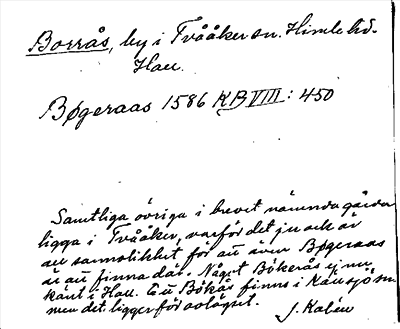 Borrås, by i Tvååker sn. Himle hd.
Hall.
Bøgeraas 1586 KB VIII: 450
Samtliga övriga i brevet nämnda gårdar
ligga i Tvååker, varför det ju ock är
all sannolikhet för att även Bøgeraas
är att finna där. Något Bökerås ej nu
känt i Hall. Ett Bökås finns i Källsjö sn
men det ligger för avlägset.
J. Kalén